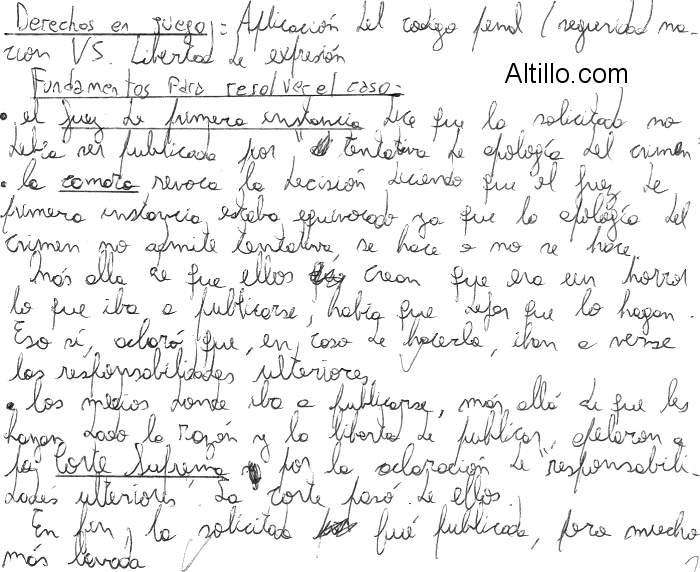 Derechos en juego: Aplicación del codigo penal (seguridad na-
cion VS. Libertad de expresión
Altillo.com
Fundamentos para resolver el caso:
• el juez de primera instancia dice que la solicitada no
debía ser publicada por "tentativa de apología del crimen"
• la camara revoca la decisión diciendo que el juez de
primera instancia estaba equivocado ya que la apología del
crimen no admite tentativa, se hace o no se hace.
Más alla de que ellos crean que era un horror
lo que iba a publicarse, había que dejar que lo hagan.
Eso sí, aclaró que, en caso de hacerla, iban a verse
las responsabilidades ulteriores.
• los medios donde iba a publicarse, más allá de que les
hayan dado la razón y la libertad de publicar, apelaron a
la Corte Suprema por la aclaración de "responsabili-
dades ulteriores" La corte pasó de ellos
En fin, la solicitada fué publicada, pero mucho
más